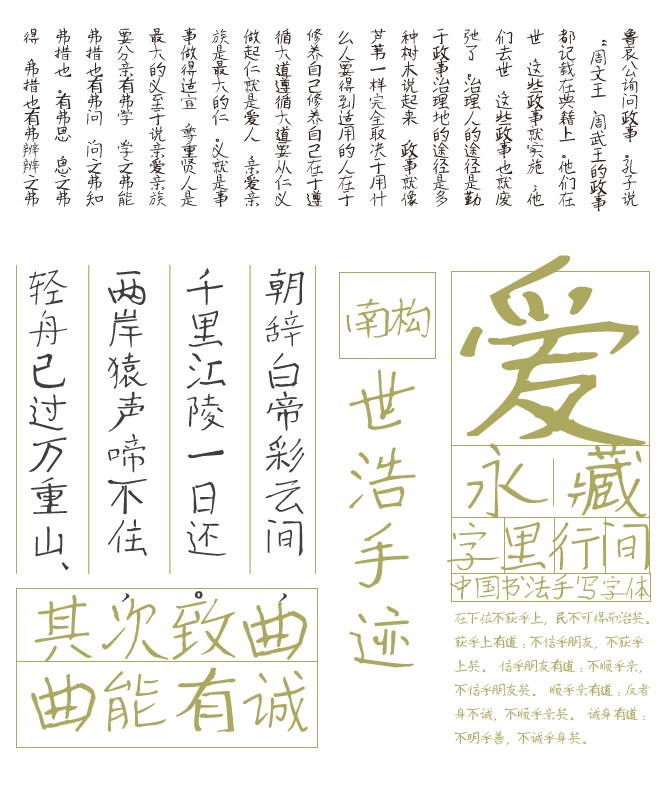 鲁哀公询问政事，孔子说
：“周文王、周武王的政事
都记载在典籍上。他们在
世，这些政事就实施；他
们去世，这些政事也就废
弛了。治理人的途径是勤
于政事治理地的途径是多
种树木说起来，政事就像
芦苇一样完全取决于用什
么人要得到适用的人在于
修养自己修养自己在于遵
循大道遵循大道要从仁义
做起仁就是爱人，亲爱亲
族是最大的仁。义就是事
事做得适宜，尊重贤人是
最大的义至于说亲爱亲族
要分亲有弗学，学之弗能
弗措也有弗问，问之弗知
弗措也。有弗思，思之弗
得，弗措也有弗辨辨之弗
朝辞白帝彩云间，
千里江陵一日还。
两岸猿声啼不住，
轻舟已过万重山、
其次致曲
曲能有诚
南构
世浩手迹
爱
永藏
字里行间
中国书法手写字体
在下位不获乎上，民不可得而治矣。
获乎上有道：不信乎朋友，不获乎
上矣。信乎朋友有道：不顺乎亲，
不信乎朋友矣。顺乎亲有道：反者
身不诚，不顺乎亲矣。诚身有道：
不明乎善，不诚乎身矣。